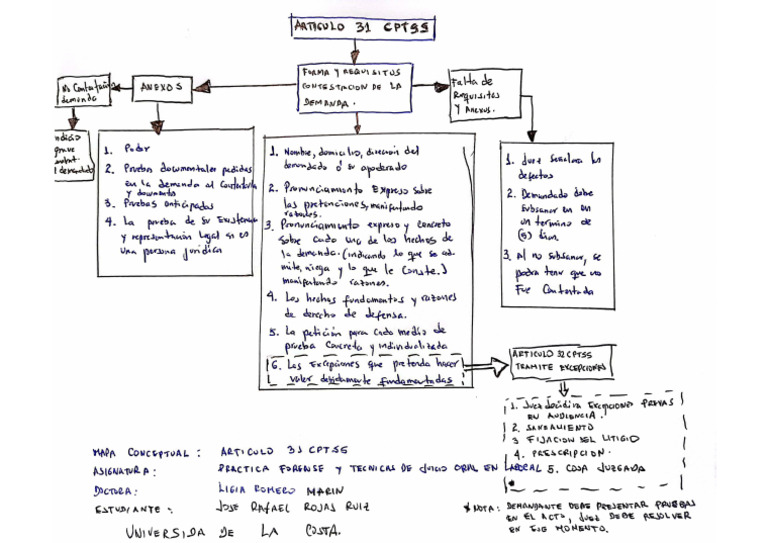 ARTICULO 31 CPTSS
FORMA Y REQUISITOS
CONTESTACION DE LA
DEMANDA.
ANEXOS
No Contestación
demanda
Indicio
grave
contra
el demandado
Falta de
Requisitos
y Anexos.
1. Poder
2. Pruebas documentales pedidas
en la demanda al Contestarla
y documento
3. Pruebas Anticipadas
4. La prueba de su Existencia
y representación Legal si es
una persona jurídica
1. Nombre, domicilio, dirección del
demandado ó su apoderado
2. Pronunciamiento Expreso sobre
las pretenciones, manifestando
razones.
3. Pronunciamiento expreso y concreto
sobre cada uno de los hechos de
la demanda. (indicando lo que se ad-
mite, niega y lo que le Conste.)
manifestando razones.
4. Los hechos fundamentos y razones
de derecho de defensa.
5. La petición para cada medio de
prueba Concreta y individualizada
6. Las Excepciones que pretenda hacer
valer debidamente fundamentadas
1. Juez Señalara los
defectos
2. Demandado debe
subsanar en en
un termino de
(5) dias.
3. Al no subsanar, se
podra tener que no
Fue Contestada
ARTICULO 32 CPTSS
TRAMITE EXCEPCIONES
1. Juez decidira Excepciones PREVIAS
EN AUDIENCIA.
2. SANEAMIENTO
3 FIJACION DEL LITIGIO
4. PRESCRIPCION.
5. COSA JUZGADA
MAPA CONCEPTUAL: ARTICULO 31 CPTSS
ASIGNATURA: PRACTICA FORENSE Y TECNICAS DE JUICIO ORAL EN LABORAL
DOCTORA: LIGIA ROMERO MARIN
ESTUDIANTE: JOSE RAFAEL ROJAS RUIZ
UNIVERSIDA DE LA COSTA.
*NOTA: DEMANDANTE DEBE PRESENTAR PRUEBAS
EN EL ACTO, JUEZ DEBE RESOLVER
EN ESE MOMENTO.